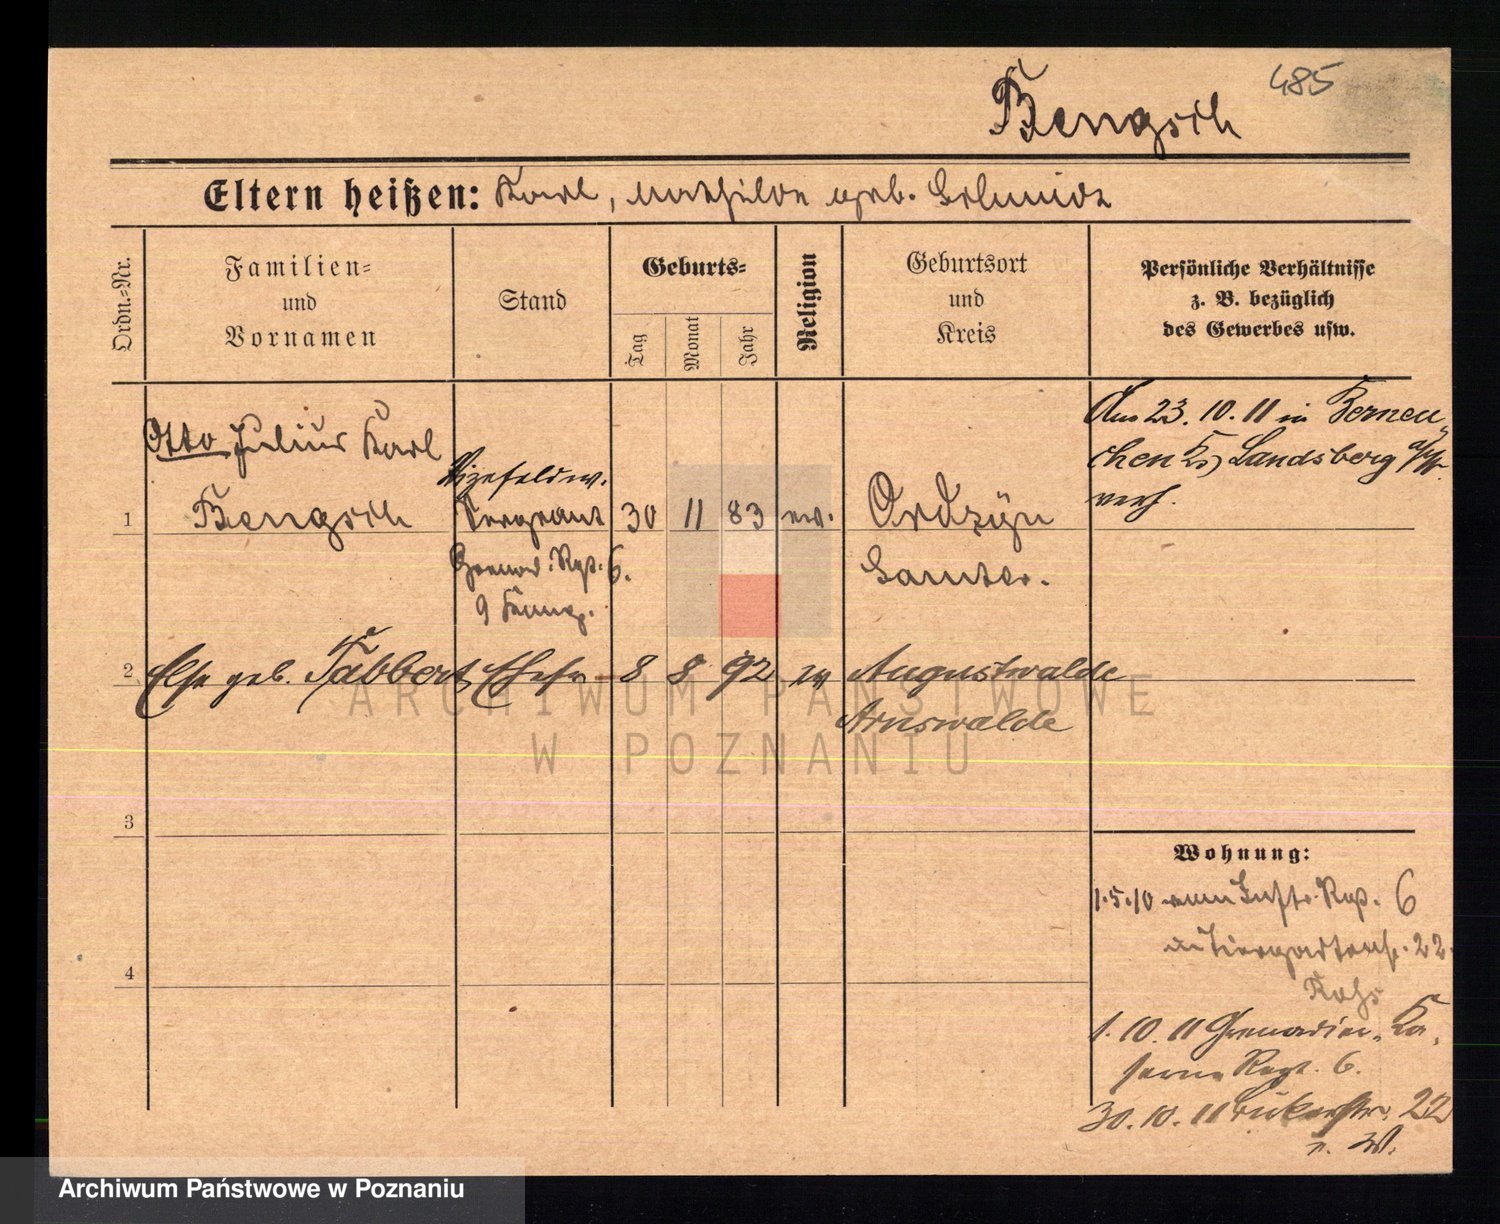 485
Bengsch
Eltern heißen: Karl, Mathilde geb. Schmidt
Ordn.-Nr.
Familien-
und
Vornamen
Stand
Geburts-
Tag
Monat
Jahr
Religion
Geburtsort
und
Kreis
Persönliche Verhältnisse
z. B. bezüglich
des Gewerbes usw.
Am 23. 10. 11 in Berneu-
chen Ks. Landsberg a/W.
verh.
Otto Julius Karl
Vizefeldw.
1 Bengsch Sergeant 30 11 83 ev. Ordzin
Grenad. Rgt. 6. Samter.
9 Komp.
2 Else geb. Tabbert Ehefr 8 8 92 ev Augustwalde
Arnswalde
3
Wohnung:
1.5.10 Rgt. 6
Tiergartenstr. 22
4
1. 10. 11 Grenadier-Ka-
serne Regt. 6.
30. 10. 11 22
v. W.
ARCHIWUM PAŃSTWOWE
W POZNANIU
Archiwum Państwowe w Poznaniu